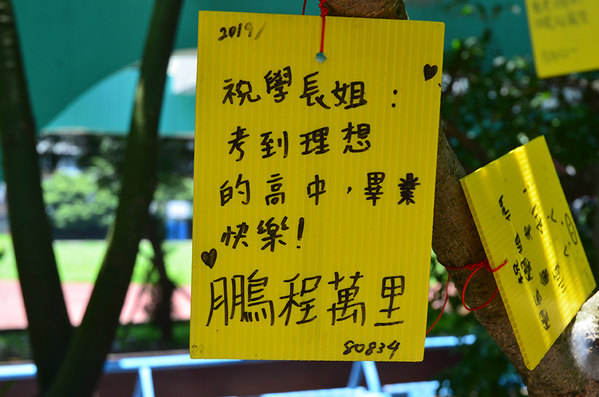 2019/
祝學長姐：
考到理想
的高中，畢業
快樂！
鵬程萬里
80834